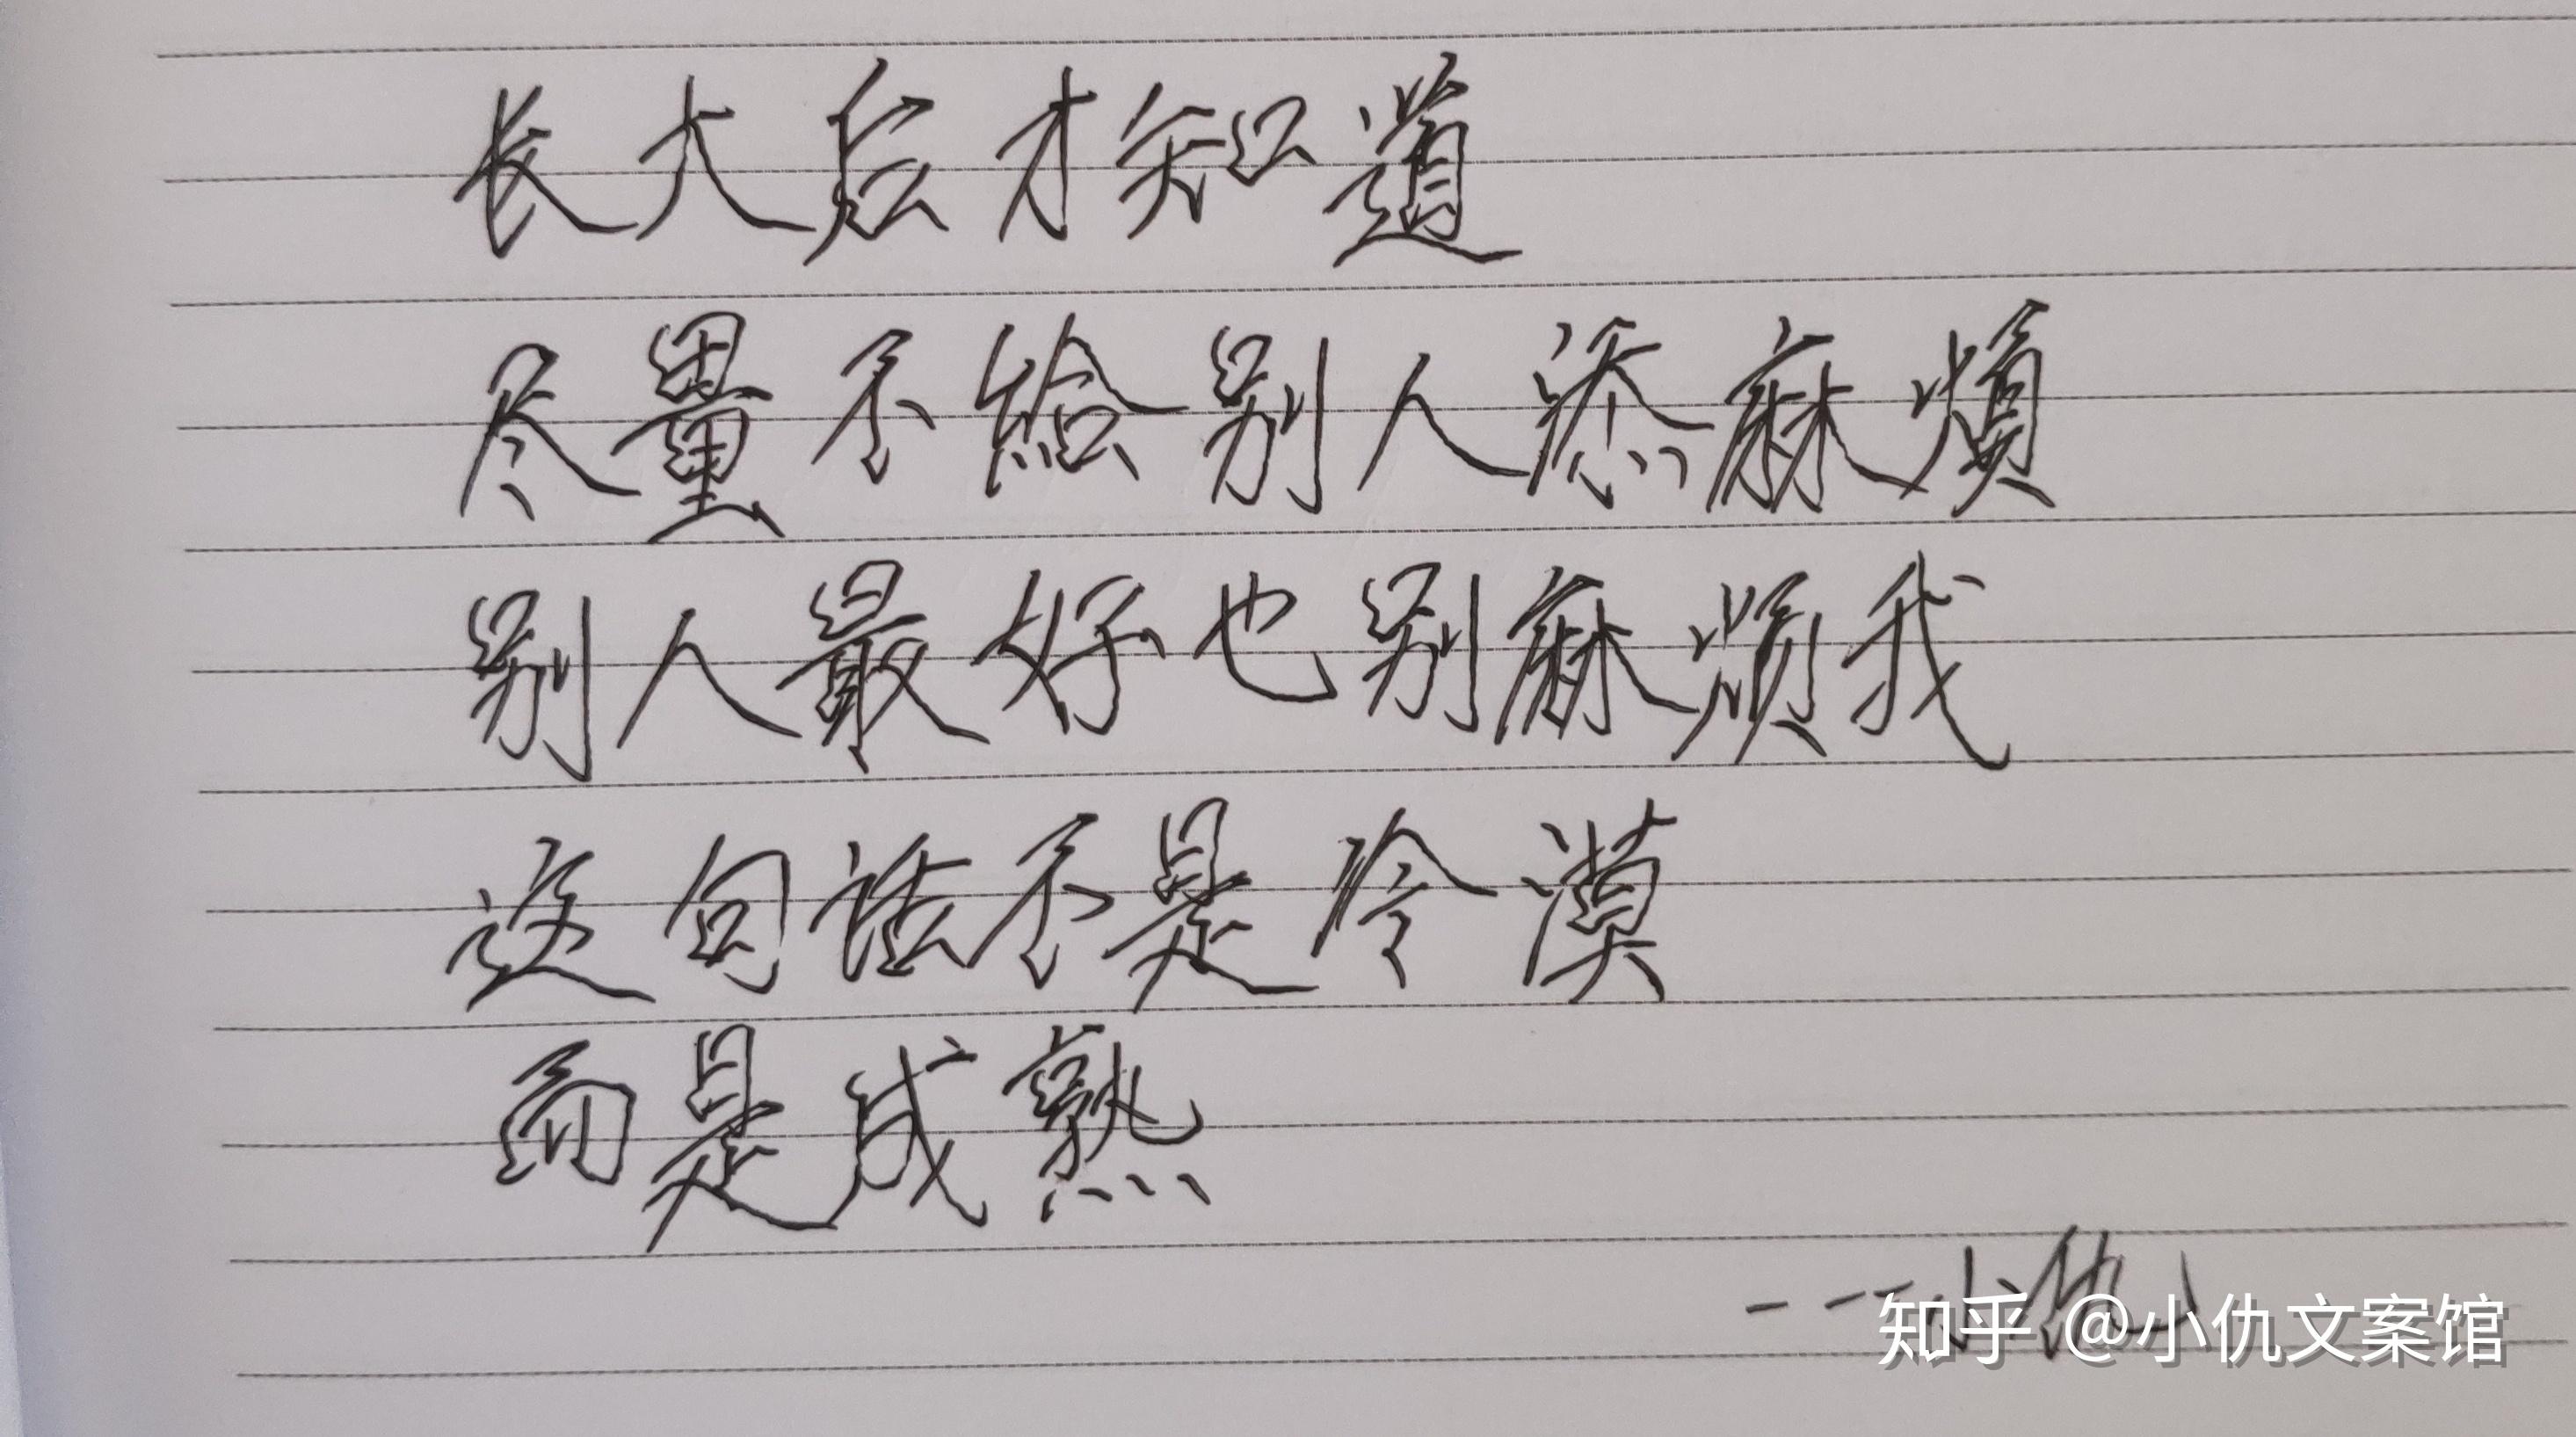 长大后才知道
尽量不给别人添麻煩
别人最好也别麻烦我
这句话不是冷漠
而是成熟
---小仇
知乎 @小仇文案馆